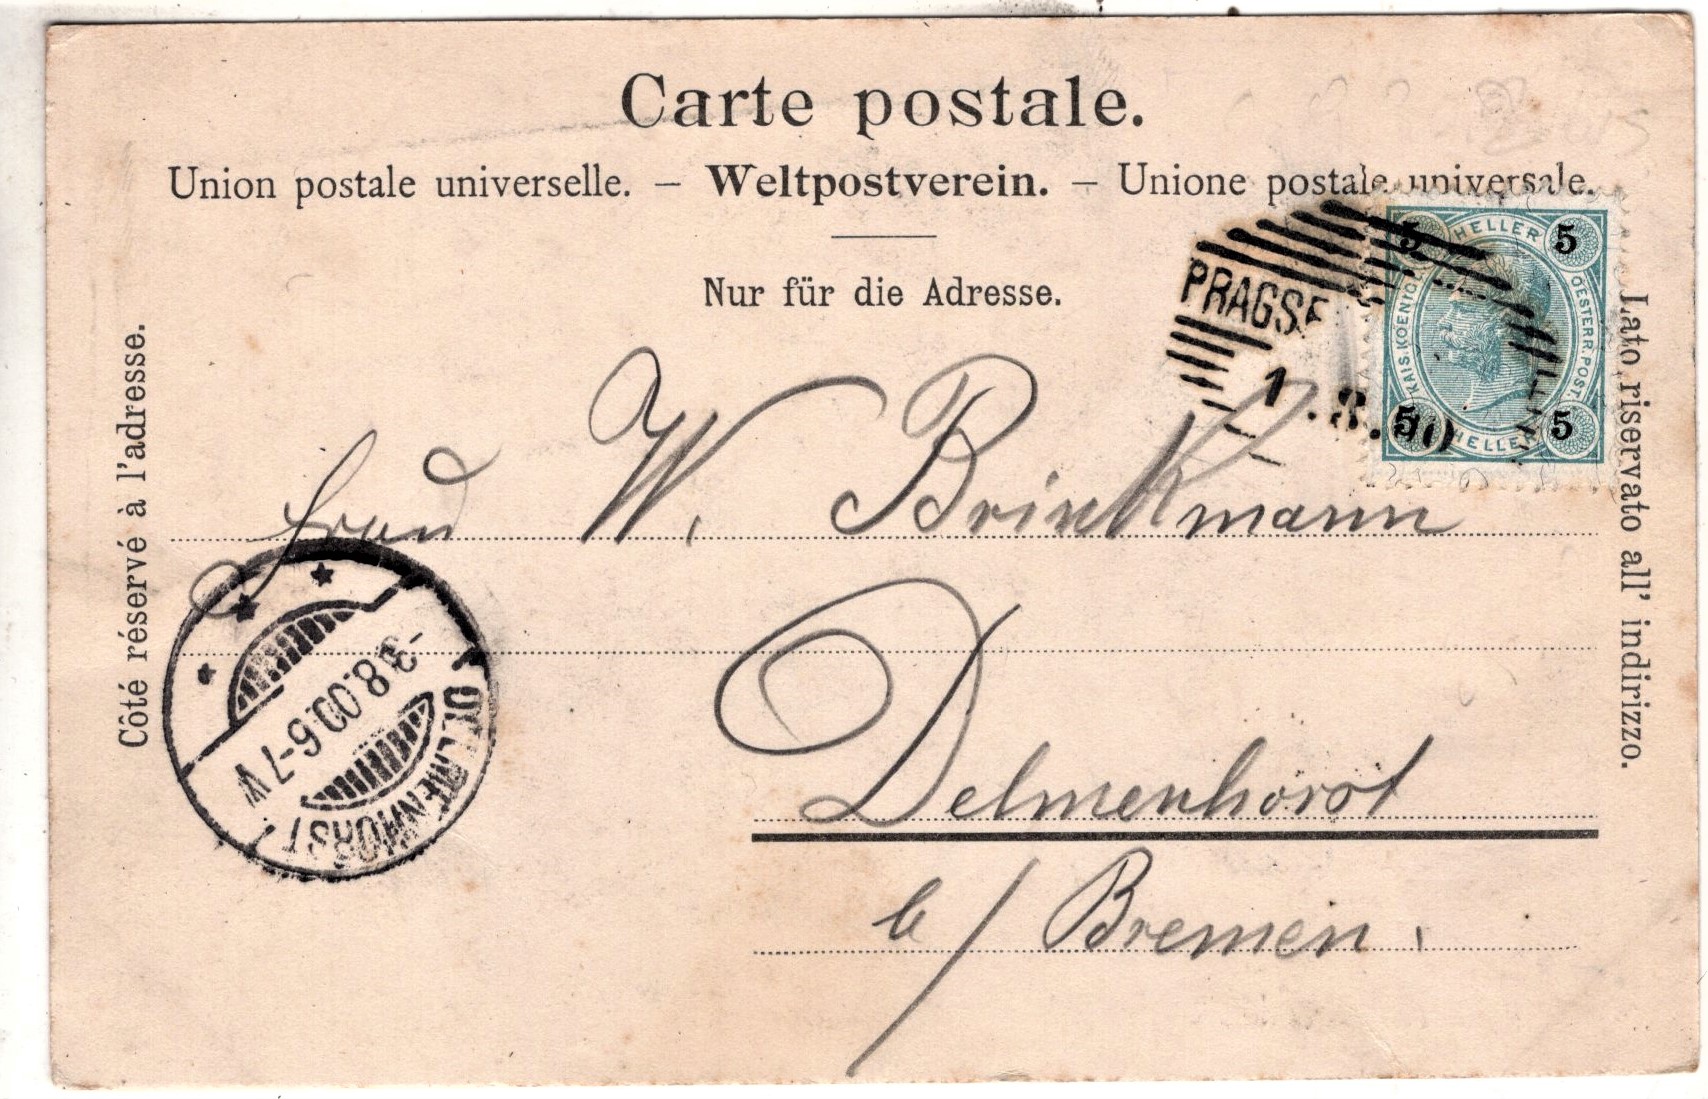 Carte postale.
Union postale universelle. – Weltpostverein. – Unione postale universale.
Nur für die Adresse.
Côté réservé à l'adresse.
Lato riservato all' indirizzo.
5 HELLER 5
KAIS. KOENIGL. OESTERR. POST.
5 HELLER 5
PRAGSE
1.8.00
Frau W. Brinkmann
Delmenhorst
b/ Bremen.
DELMENHORST
-3.8.00.6-7V